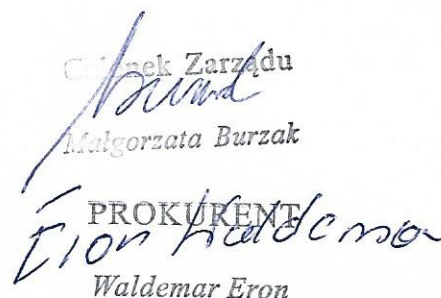 Członek Zarządu
Małgorzata Burzak
PROKURENT
Eron Waldemar
Waldemar Eron